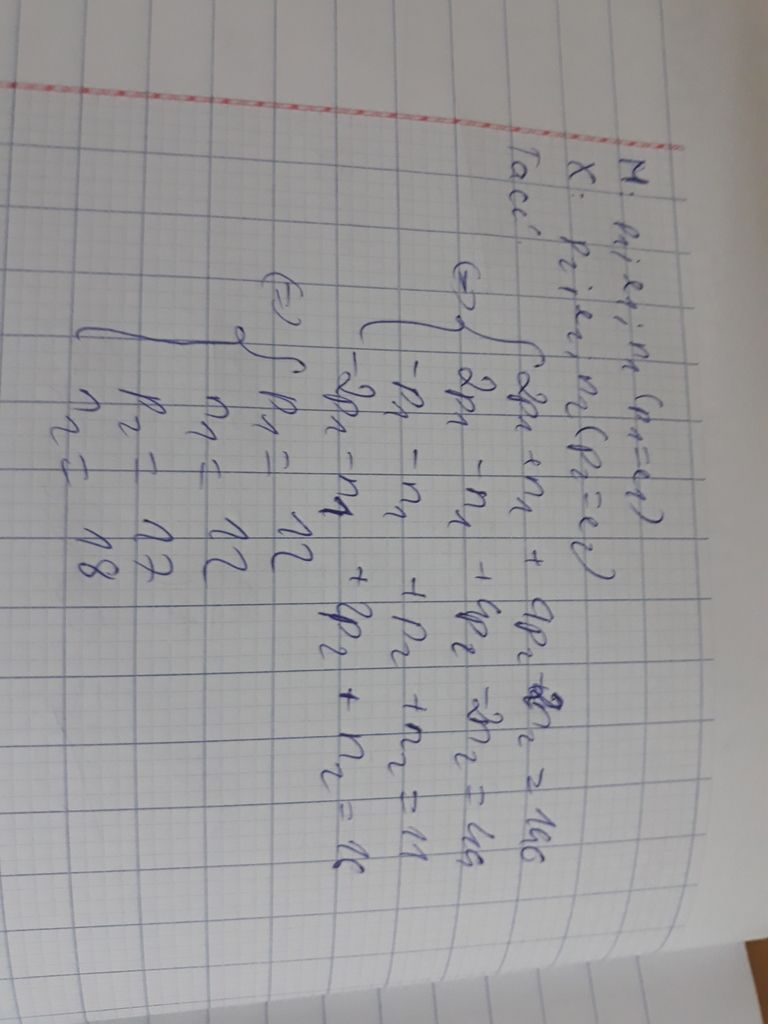 M: p₁; e₁; n₁ (p₁=e₁)
X: p₂; e₂; n₂ (p₂=e₂)
Ta có:
(=) { 2p₁ + n₁ + 4p₂ + 2n₂ = 140
2p₁ - n₁ + 4p₂ - 2n₂ = 44
-p₁ - n₁ + p₂ + n₂ = 11
-2p₁ - n₁ + 2p₂ + n₂ = 16
(=) { p₁ = 12
n₁ = 12
p₂ = 17
n₂ = 18